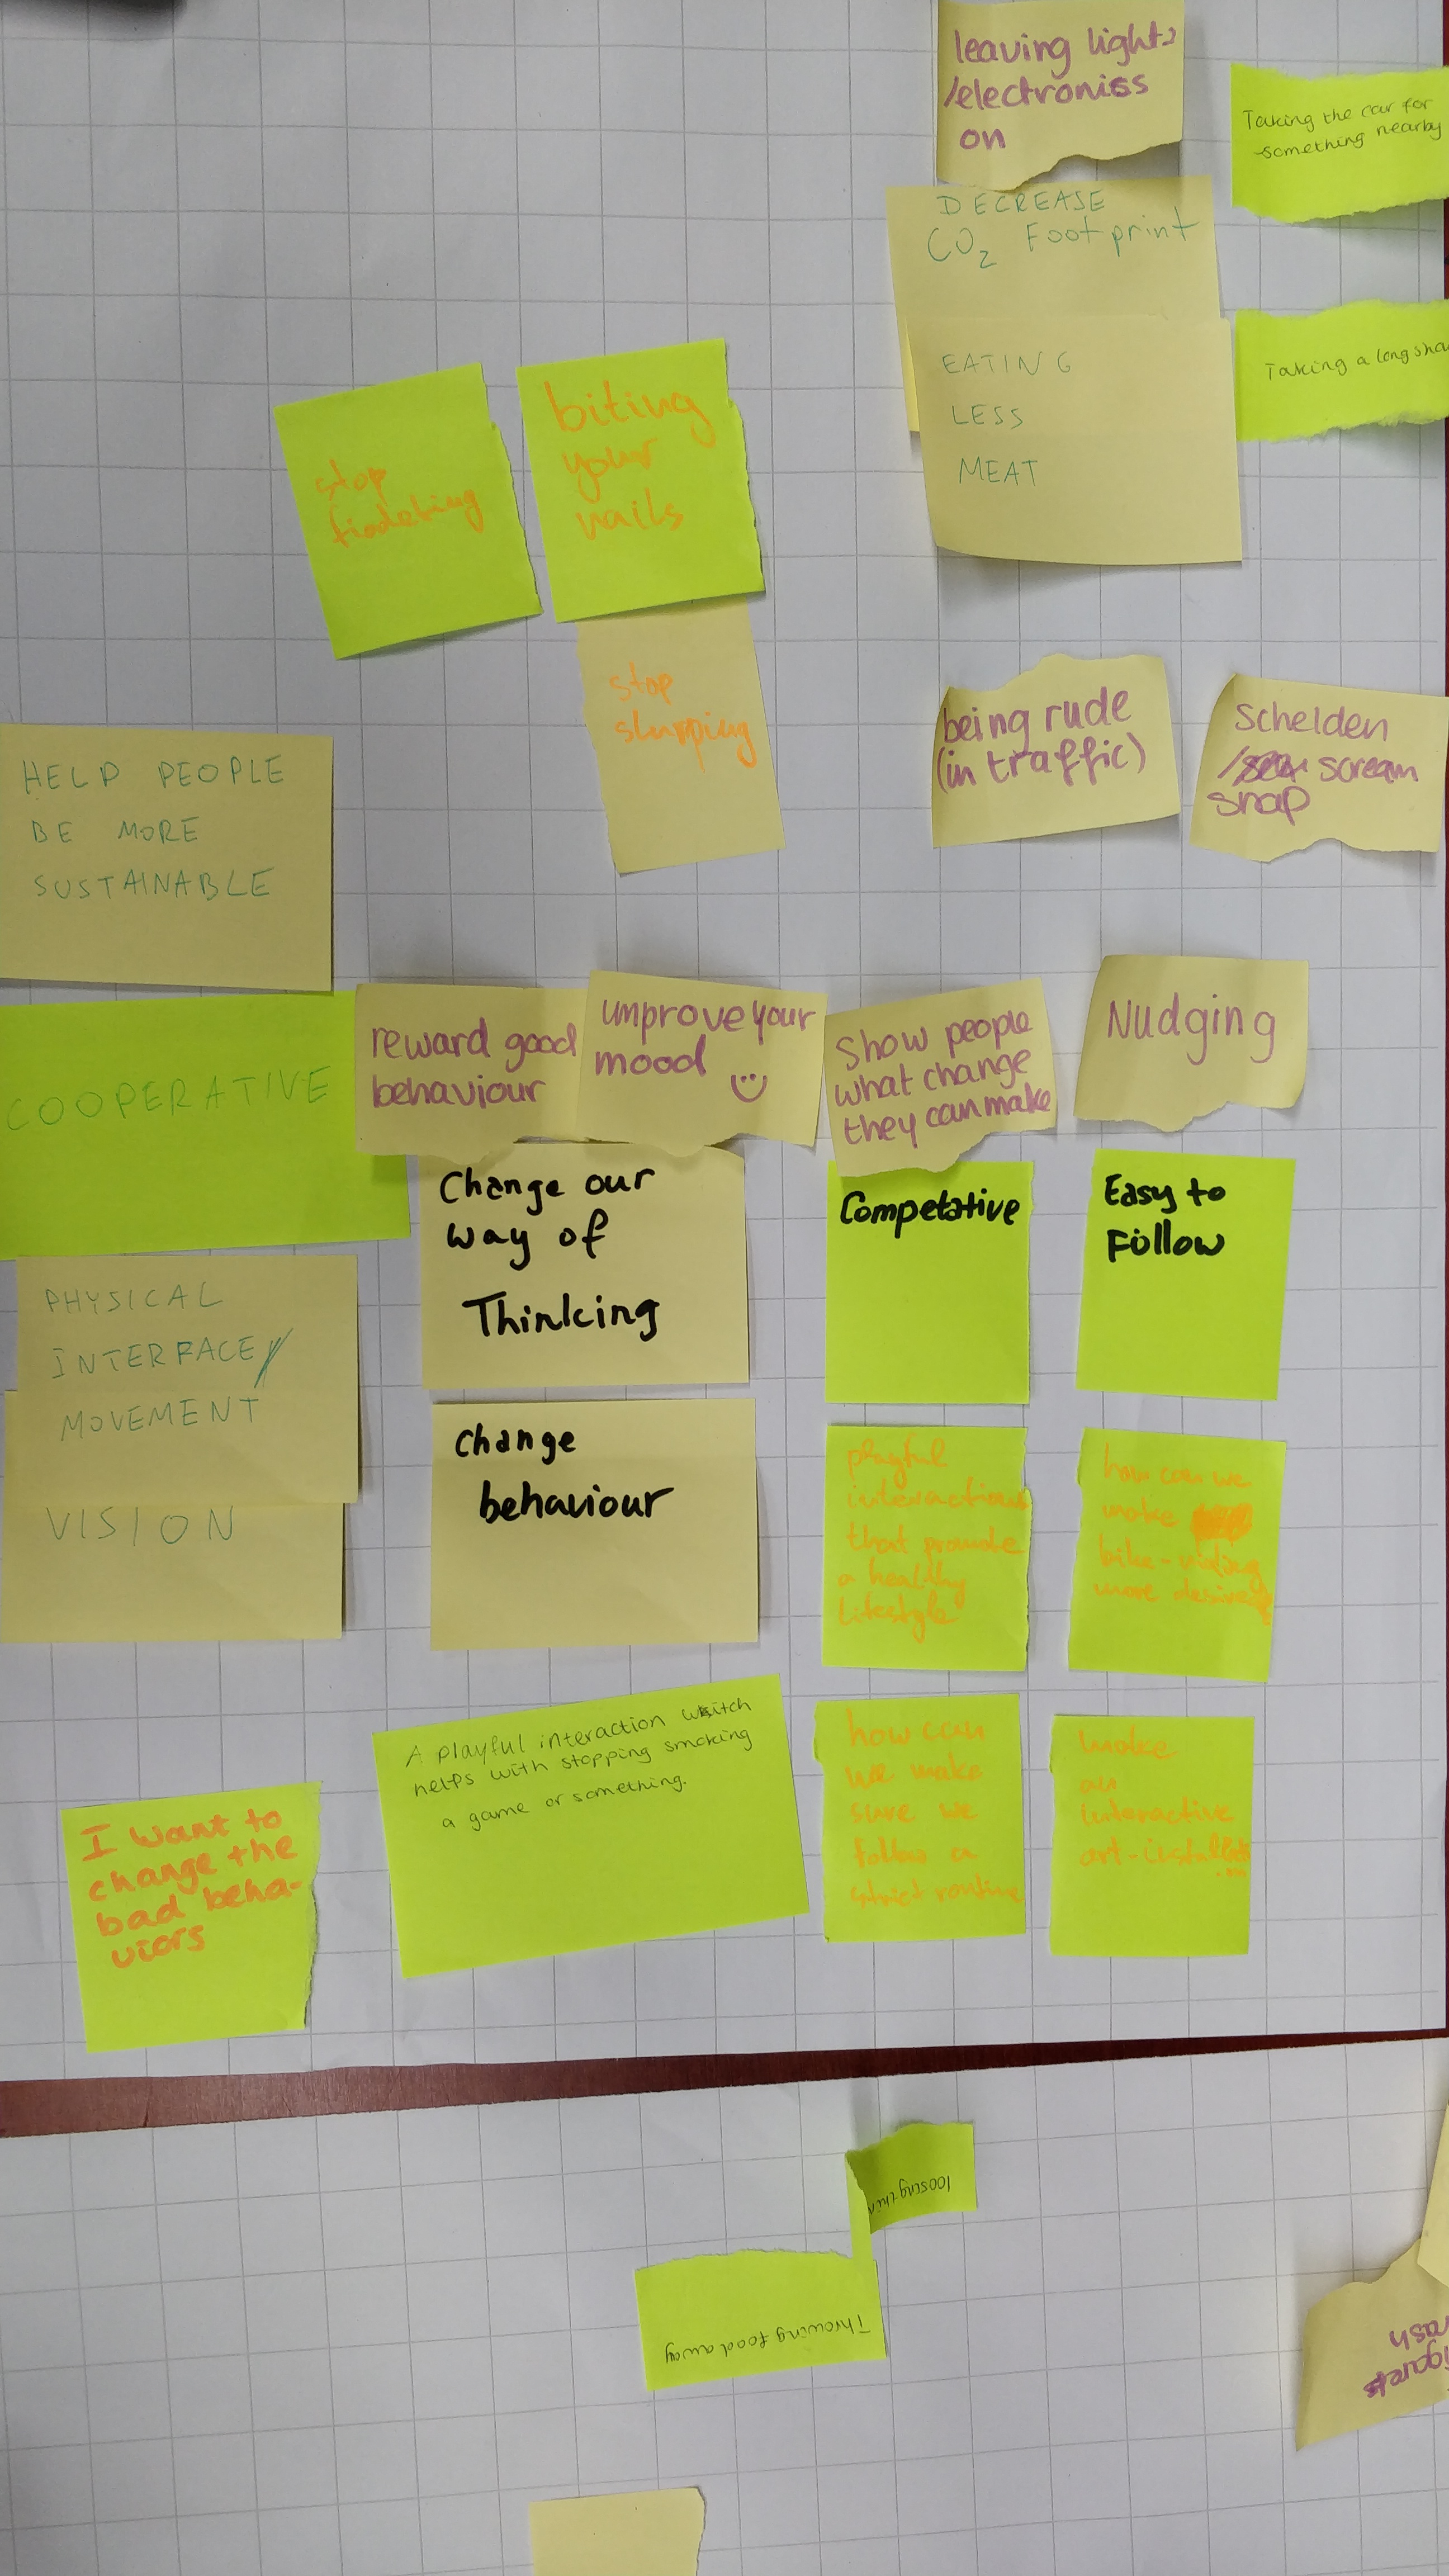 leaving lights
/electronics
on
Taking the car for
something nearby
DECREASE
CO₂ Footprint
EATING
LESS
MEAT
Taking a long
biting
your
nails
stop
stop
slurping
being rude
(in traffic)
Schelden
/ scream
snap
HELP PEOPLE
BE MORE
SUSTAINABLE
COOPERATIVE
reward good
behaviour
improve your
mood
Show people
what change
they can make
Nudging
Change our
way of
Thinking
Competative
Easy to
Follow
PHYSICAL
INTERFACE/
MOVEMENT
VISION
Change
behaviour
playful
interactions
that promote
a healthy
lifestyle
how can we
make
bike-riding
more
A playful interaction witch
helps with stopping smoking
a game or something.
how can
we make
sure we
follow a
strict routine
make
an
interactive
I want to
change the
bad beha-
viors
loosing
Throwing food away